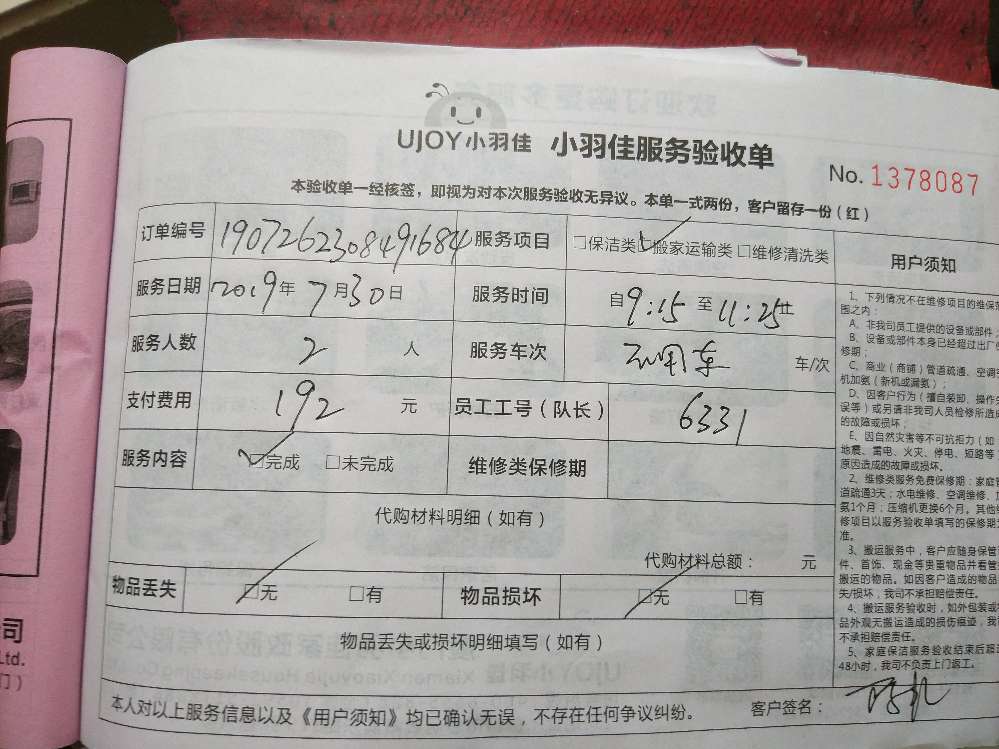 UJOY小羽佳 小羽佳服务验收单
No. 1378087
本验收单一经核签，即视为对本次服务验收无异议。本单一式两份，客户留存一份（红）
订单编号 1907262308491684 服务项目 □保洁类 □搬家运输类 □维修清洗类
服务日期 2019年 7月30日 服务时间 自9:15 至 11:25止
服务人数 2 人 服务车次 不用车 车/次
支付费用 192 元 员工工号（队长） 6331
服务内容 □完成 □未完成 维修类保修期
代购材料明细（如有）
代购材料总额： 元
物品丢失 □无 □有 物品损坏 □无 □有
物品丢失或损坏明细填写（如有）
本人对以上服务信息以及《用户须知》均已确认无误，不存在任何争议纠纷。 客户签名：
用户须知
1、下列情况不在维修项目的维保范
围之内：
A、非我司员工提供的设备或部件
B、设备或部件本身已经超过出厂
修期；
C、商业（商铺）管道疏通、空调
机加氨（新机或漏氨）；
D、因客户行为（擅自装卸，操作失
误等）或另请非我司人员检修所造成
的故障或损坏；
E、因自然灾害等不可抗拒力（如
地震、雷电、火灾、停电、短路等
原因造成的故障或损坏。
2、维修类服务免费保修期：家庭管
道疏通3天；水电维修、空调维修、加
氨1个月；压缩机更换6个月。其他维
修项目以服务验收单填写的保修期为
准。
3、搬运服务中，客户应随身保管
件、首饰、现金等贵重物品并看管
搬运的物品。如因客户造成的物品
失/损坏，我司不承担赔偿责任。
4、搬运服务验收时，如外包装或
品外观无搬运造成的损伤痕迹，我
不承担赔偿责任。
5、家庭保洁服务验收结束后超过
48小时，我司不负责上门返工。
司
Ltd.
门）